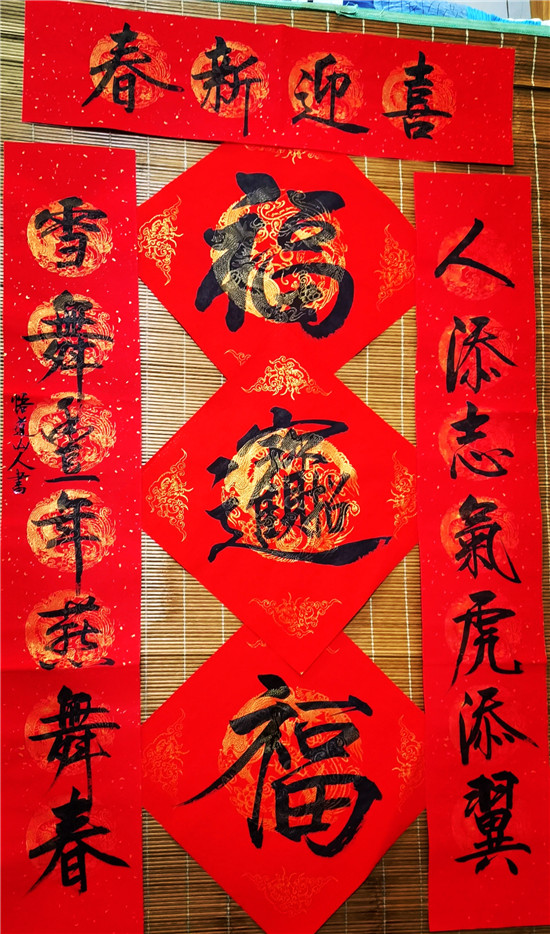 喜迎新春
人添志氣虎添翼
福
招財進寶
福
雪舞豐年燕舞春
山人書